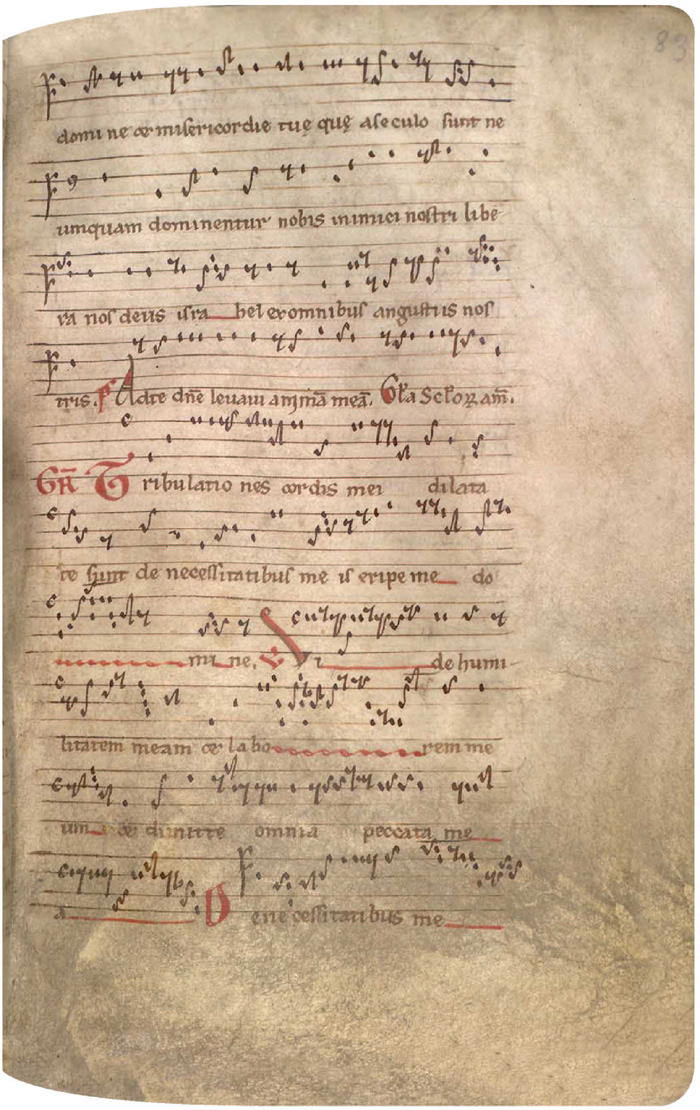 83
domi ne & misericordie tuę quę a seculo sunt ne
umquam dominentur nobis inimici nostri libe
ra nos deus isra hel ex omnibus angustiis nos
tris. Ad te dn̄e levavi animā meā. Gła Scłoꝝ am̄.
GR̄ Tribulatio nes cordis mei dilata
te sunt de necessitatibus me is eripe me do
mi ne. V Vi de humi
litatem meam & labo rem me
um & dimitte omnia peccata me
a D e necessitatibus me